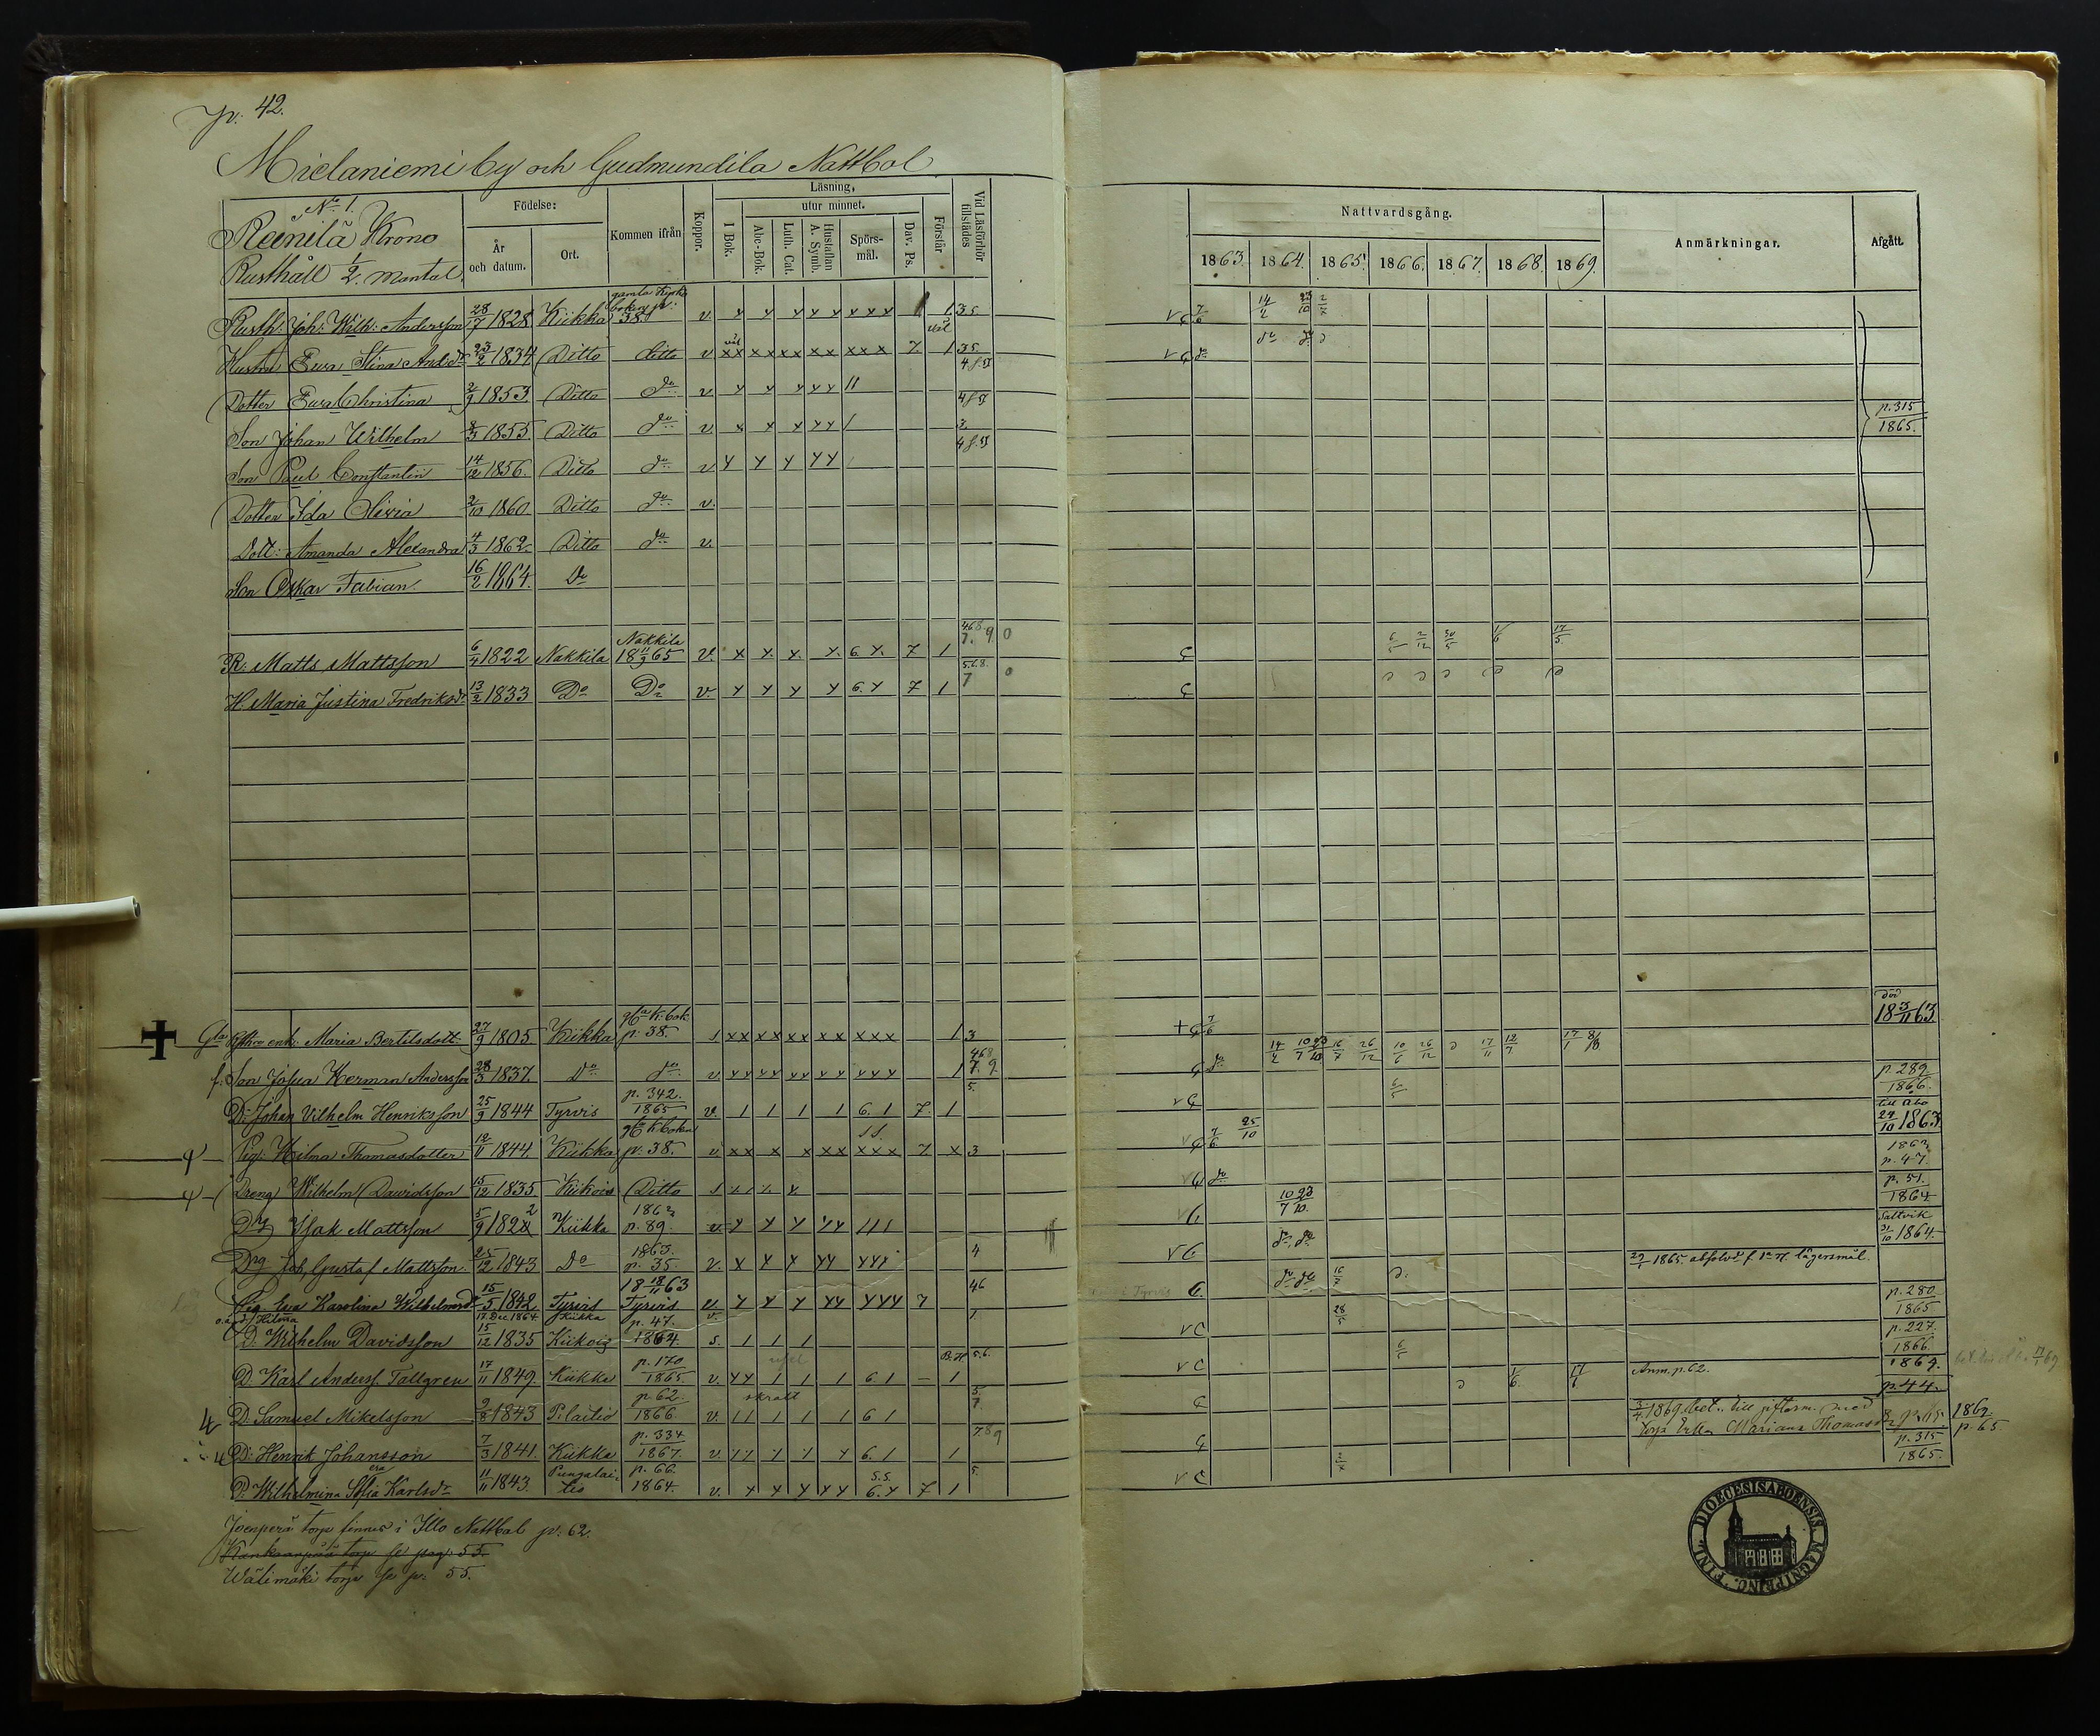 p. 42.
Mielaniemi by och Gudmundila Nattbol
No 1.
Reinilä Krono
Rusthåll 1/2 mantal
Födelse:
År och datum.
Ort.
Kommen ifrån
Koppor.
Läsning,
I Bok.
utur minnet.
Abc-Bok.
Luth. Cat.
Hustaflan A. Symb.
Spörs-mål.
Dav. Ps.
Förstår
Vid Läsförhör tillstädes
Nattvardsgång.
1863. 1864. 1865. 1866. 1867. 1868. 1869.
Anmärkningar.
Afgått.
Rusth: Joh: Wilh: Andersson 28/7 1828 Kiikka gamla Kyrko boken p: 38 v. x x x x x x x x 1 3 5 7/6 14/2 23/10
Hustru Eva Stina Andsdr 23/2 1834 Ditto ditto v xx xx xx xx xxx 7. 1 35
Dotter Eva Christina 2/9 1853 Ditto do v. x x x x x 11 4
Son Johan Wilhelm 8/3 1855 Ditto do v. x x x x x 1
p. 315
1865.
Son Paul Constantin 14/12 1856. Ditto do v x x x x x
Dotter Ida Olivia 2/10 1860 Ditto do v.
Dott: Amanda Alexandra 4/3 1862 Ditto do v.
Son Oskar Fabian 16/2 1864. Do
R: Matts Mattsson 6/4 1822 Nakkila Nakkila 18 11/9 65 v. x x. x. x. 6. x. 7 1 468. 7. 9 0 2/12 30/5 1/6 17/5
H. Maria Justina Fredriksdr 13/2 1833 Do Do v. x x x x 6. x 7 1 5.6.8. 7 0
Maria Bertilsdott: 27/9 1805 Kiikka p: 38. xx xx xx xx xxx 1 3 7/6 död 18 3/11 63
f. Son Josua Herman Andersson 28/3 1837. do do v xx xx xx xx xxx 1 468 7. 9. do 14/2 10/7 23/10 16/7 26/12 10/6 26/12 17/11 12/7 17/1
D: Johan Vilhelm Henriksson 25/9 1844 Tyrvis p. 342. 1865 v. 1 1 1 1 6. 1 7. 1 5. 6/5 p. 289 1866.
Pig: Hilma Thomasdotter 12/11 1844. Kiikka p: 38. v. xx x x xx xxx 7 x 3 7/6 25/10 till Åbo 29/10 1863
Dreng Wilhelm Davidsson 15/12 1835 Kiikois Ditto do 1863 p. 47.
Drg Isak Mattsson 5/9 1822 Kiikka 1862 p. 89. v. x x x xx 111 10/7 23/10 p. 51. 1864
Drg Joh, Gustaf Mattsson 25/12 1843 Do 1863. p. 35 v. x x x xx xxx 4 do do Saltvik 31/10 1864.
Pig Eva Karolina Wilhelmsdr 15/5 1842 Tyrvis 18 18/11 63 Tyrvis v. x x x xx xxx 7 46 do do 16/7 1865 absolv. f. lägersmål. p. 280 1865
Hilma 17. Dec 1864 Kiikka
D: Wilhelm Davidsson 15/12 1835 Kiikois p. 47. 1864. s. 1 1 1 1. 28/5 p. 227. 1866.
D Karl Anderss. Tallgren 17/11 1849. Kiikka p. 170 1865. v. xx 1 1 1 6. 1 – 1 5.6. 6/5 Anm. p. 62. 1869. p. 44.
D. Samuel Mikelsson 9/8 1843 Pilaitio p 62 1866. v. 11 1 1 1 6 1 skralt 5. 7. 1/6. 17/6
3/4 1869 bet. till gifterm. med Mariana Thomasdr 1869. p. 65.
D: Henrik Johansson 7/3 1841. Kiikka p. 334 1867. v. 6. 1 1 789 p. 315 1865.
P: Wilhelmina Sofia Karlsdr 11/11 1843. Pungalaitio p. 66. 1864. v. x x x x x 6. x 7 1 5.
Joenperä torp finnes i Illo Nattbol p. 62.
Kankaanpää torp se pag: 55.
Wälimäki torp se p: 55.
DIOECESIS ABOENSIS. MAGNI PRINC. FINL.